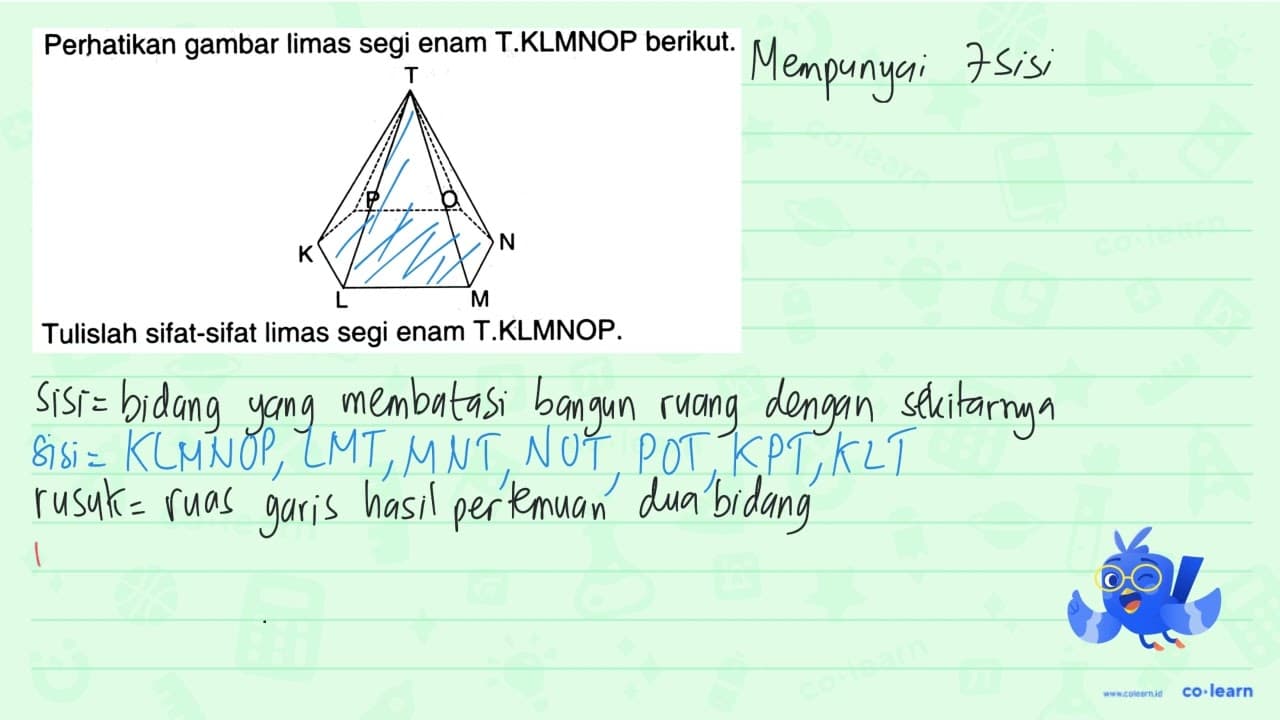 Perhatikan gambar limas segi enam T.KLMNOP berikut.
Mempunyai 7 sisi
T
P O
K N
L M
Tulislah sifat-sifat limas segi enam T.KLMNOP.
sisi = bidang yang membatasi bangun ruang dengan sekitarnya
sisi = KLMNOP, LMT, MNT, NOT, POT, KPT, KLT
rusuk = ruas garis hasil pertemuan dua bidang
www.colearn.id co·learn